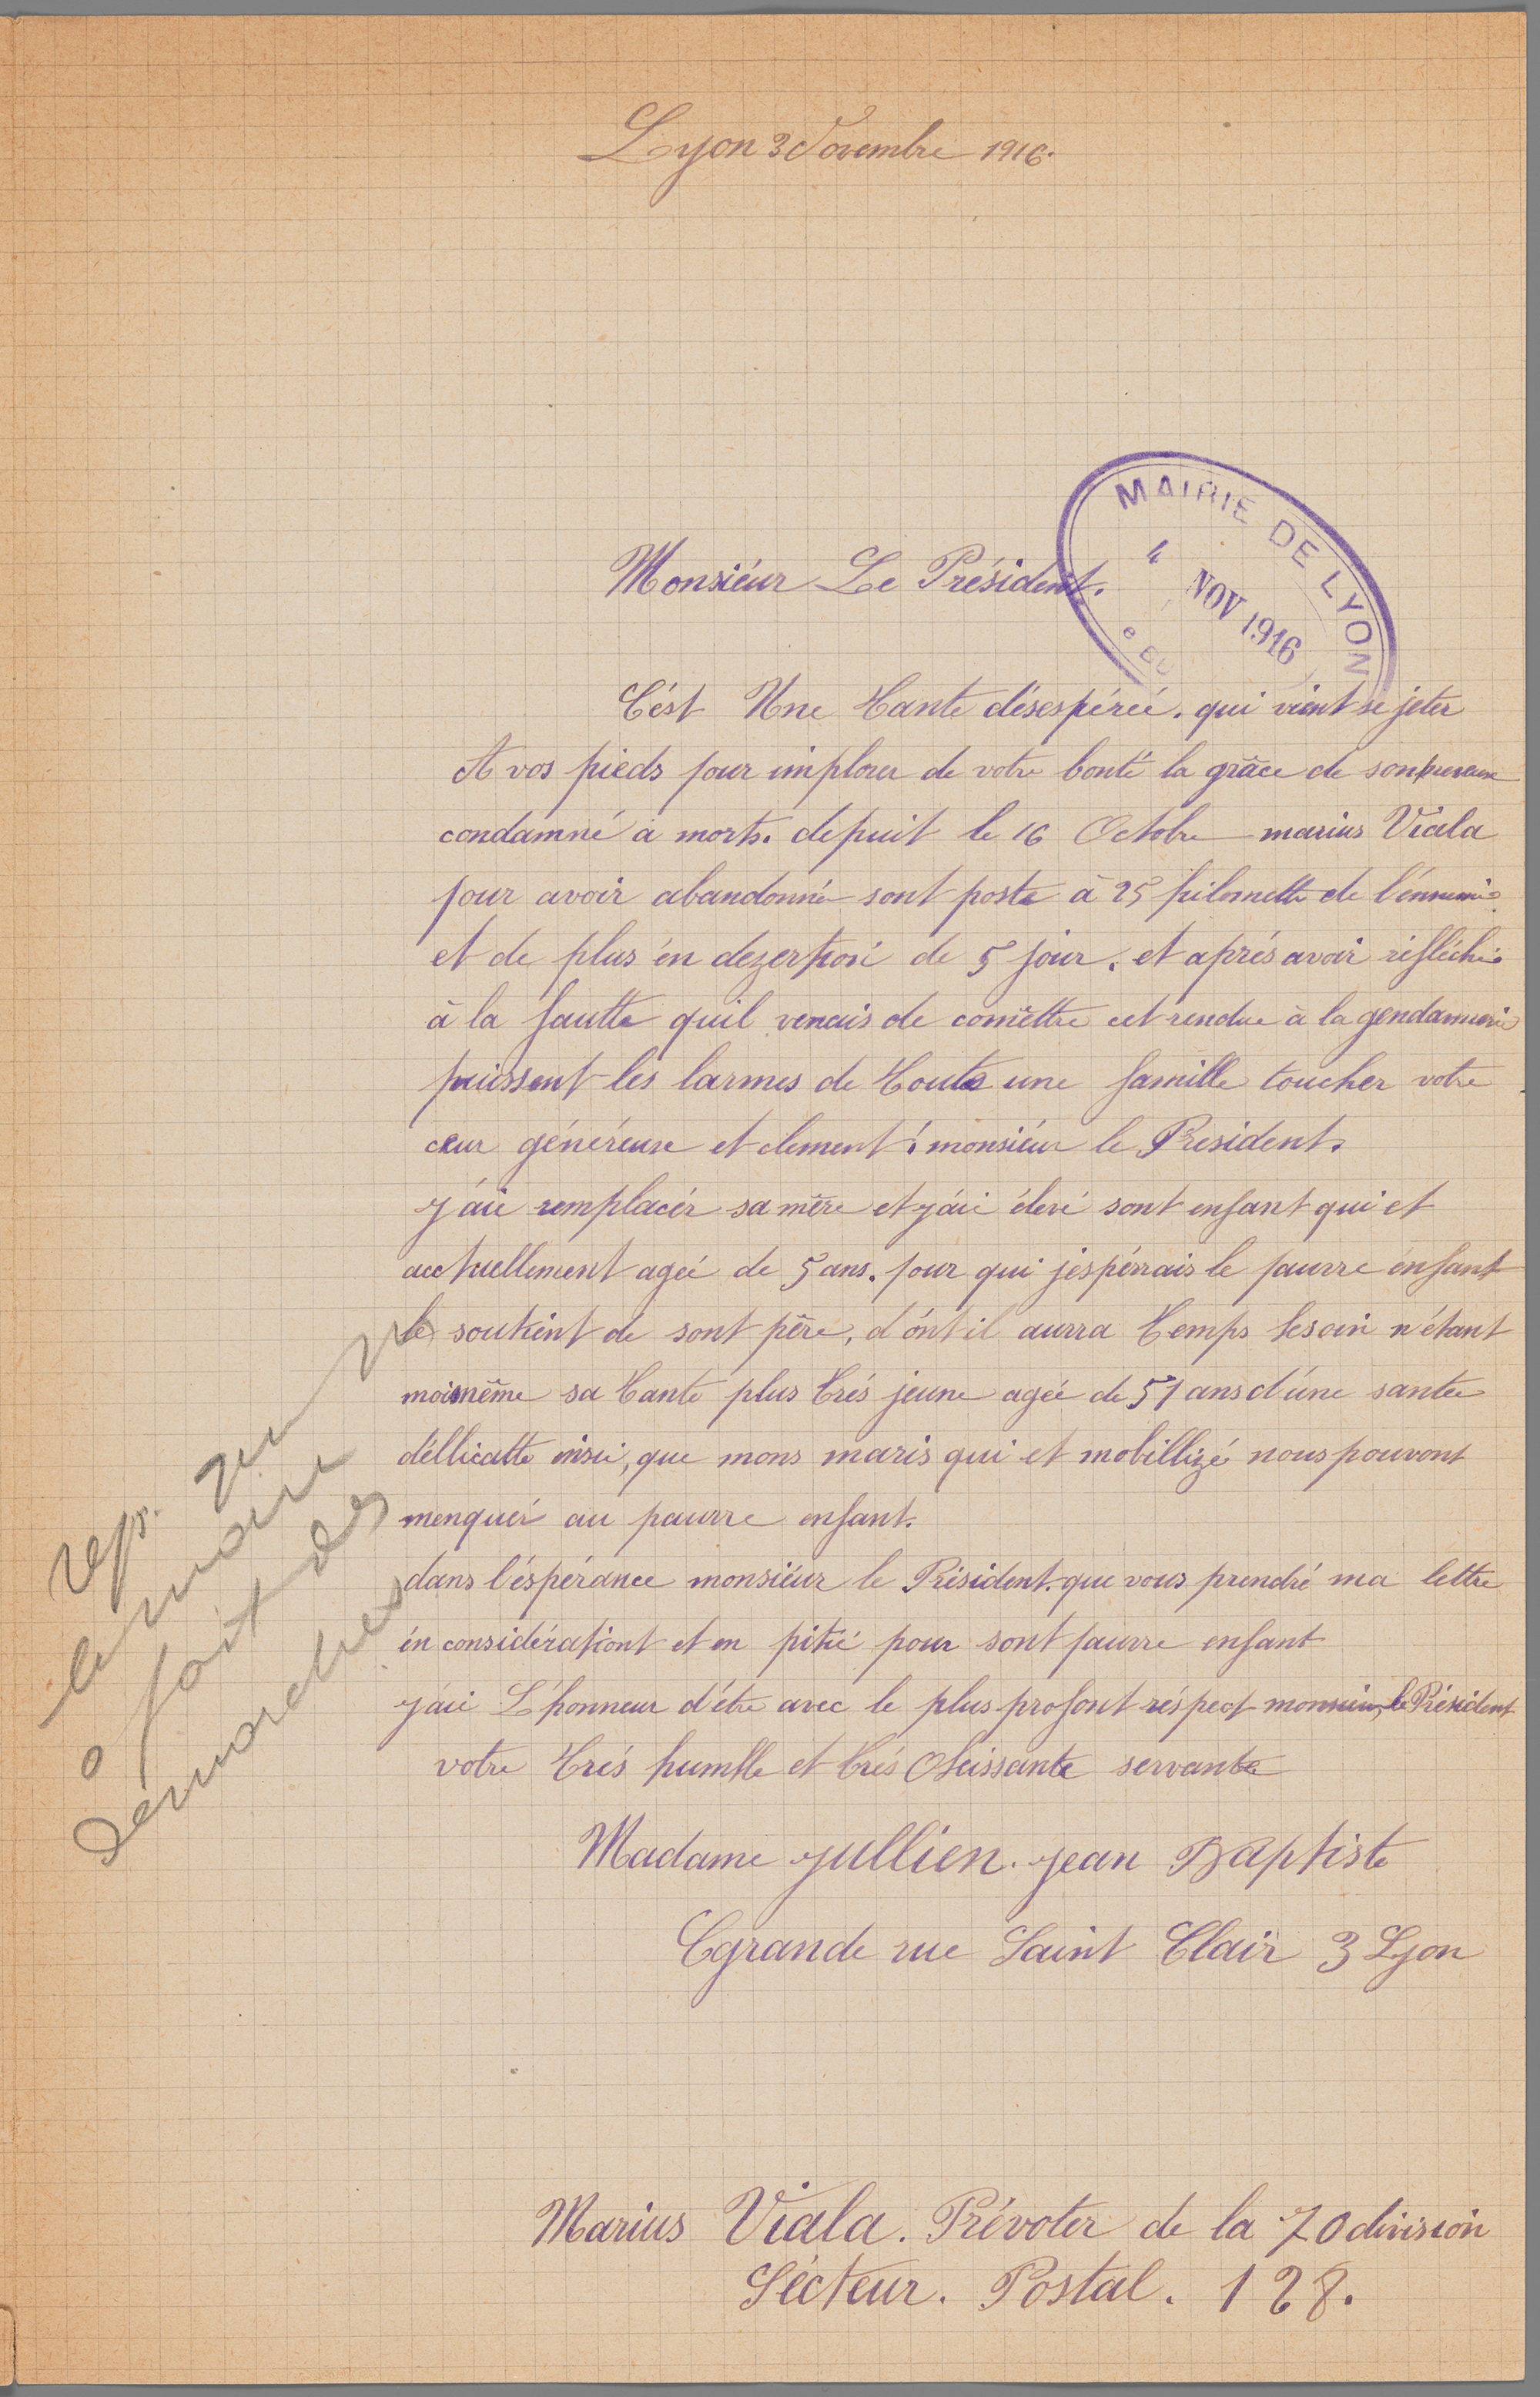 Lyon 3 Novembre 1916.
MAIRIE DE LYON
4 NOV 1916
Monsiéur Le Président.
C'ést Une Tante désespéreé. qui vient se jeter
A vos pieds pour implorer de votre bonté la grâce de son neveux
condamné a morts. depuit le 16 Octobre marius Viala
pour avoir abandonné sont poste à 25 kilomette de l'énnemie
et de plus én dezertion de 5 jour. et aprés avoir réfléchie
à la fautte quil venais de comêttre cet rendue à la gendarmerie
puissent les larmes de Toute une famille toucher votre
cœur généreuse et clement! monsiéur le President.
j'ái remplacér sa mère et j'ái élevé sont enfant qui et
acctuellement ageé de 5 ans. pour qui j'éspérrais le pauvre enfant
le soutient de sont père, d'ónt il aurra Temps besoin n'étant
moi même sa Tante plus trés jeune ageé de 51 ans d'úne santée
déllicatte insi, que mons maris qui et mobillizé nous pouvont
menquér au pauvre enfant.
dans l'éspérance monsiéur le Président. que vous prendré ma lettre
én considérationt et en pitié pour sont pauvre enfant
j'ái L'honneur d'étre avec le plus profont réspect monsieur, le Président
votre trés humble et trés Obeissante servante
Madame jullien. jean Baptiste
Ggrande rue Saint Clair 3 Lyon
rep. que M
le maire
a fait des
démarches
Marius Viala. Prévoter de la 70 division
Sécteur. Postal. 128.